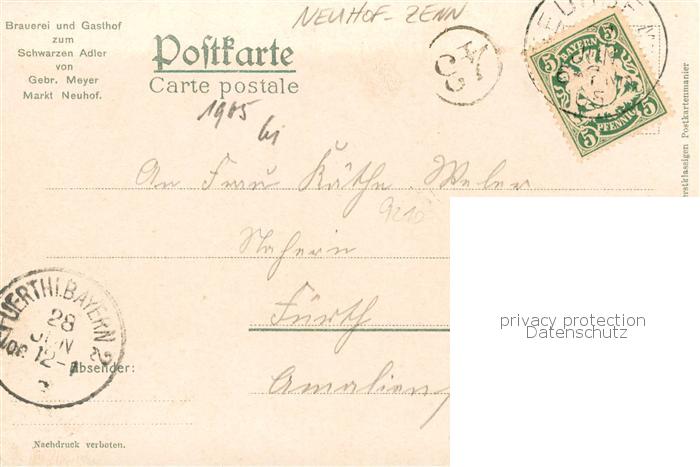 NEUHOF-ZENN
Brauerei und Gasthof
zum
Schwarzen Adler
von
Gebr. Meyer
Markt Neuhof.
Postkarte
Carte postale
1905
5 BAYERN 5
5 PFENNIG 5
An Frau Käthe Weler
9210
Näherin
Fürth
Amalien
FUERTH I.BAYERN 2
28
JUN
12-1
Absender:
Nachdruck verboten.
erstklassigen Postkartenmanier
privacy protection
Datenschutz